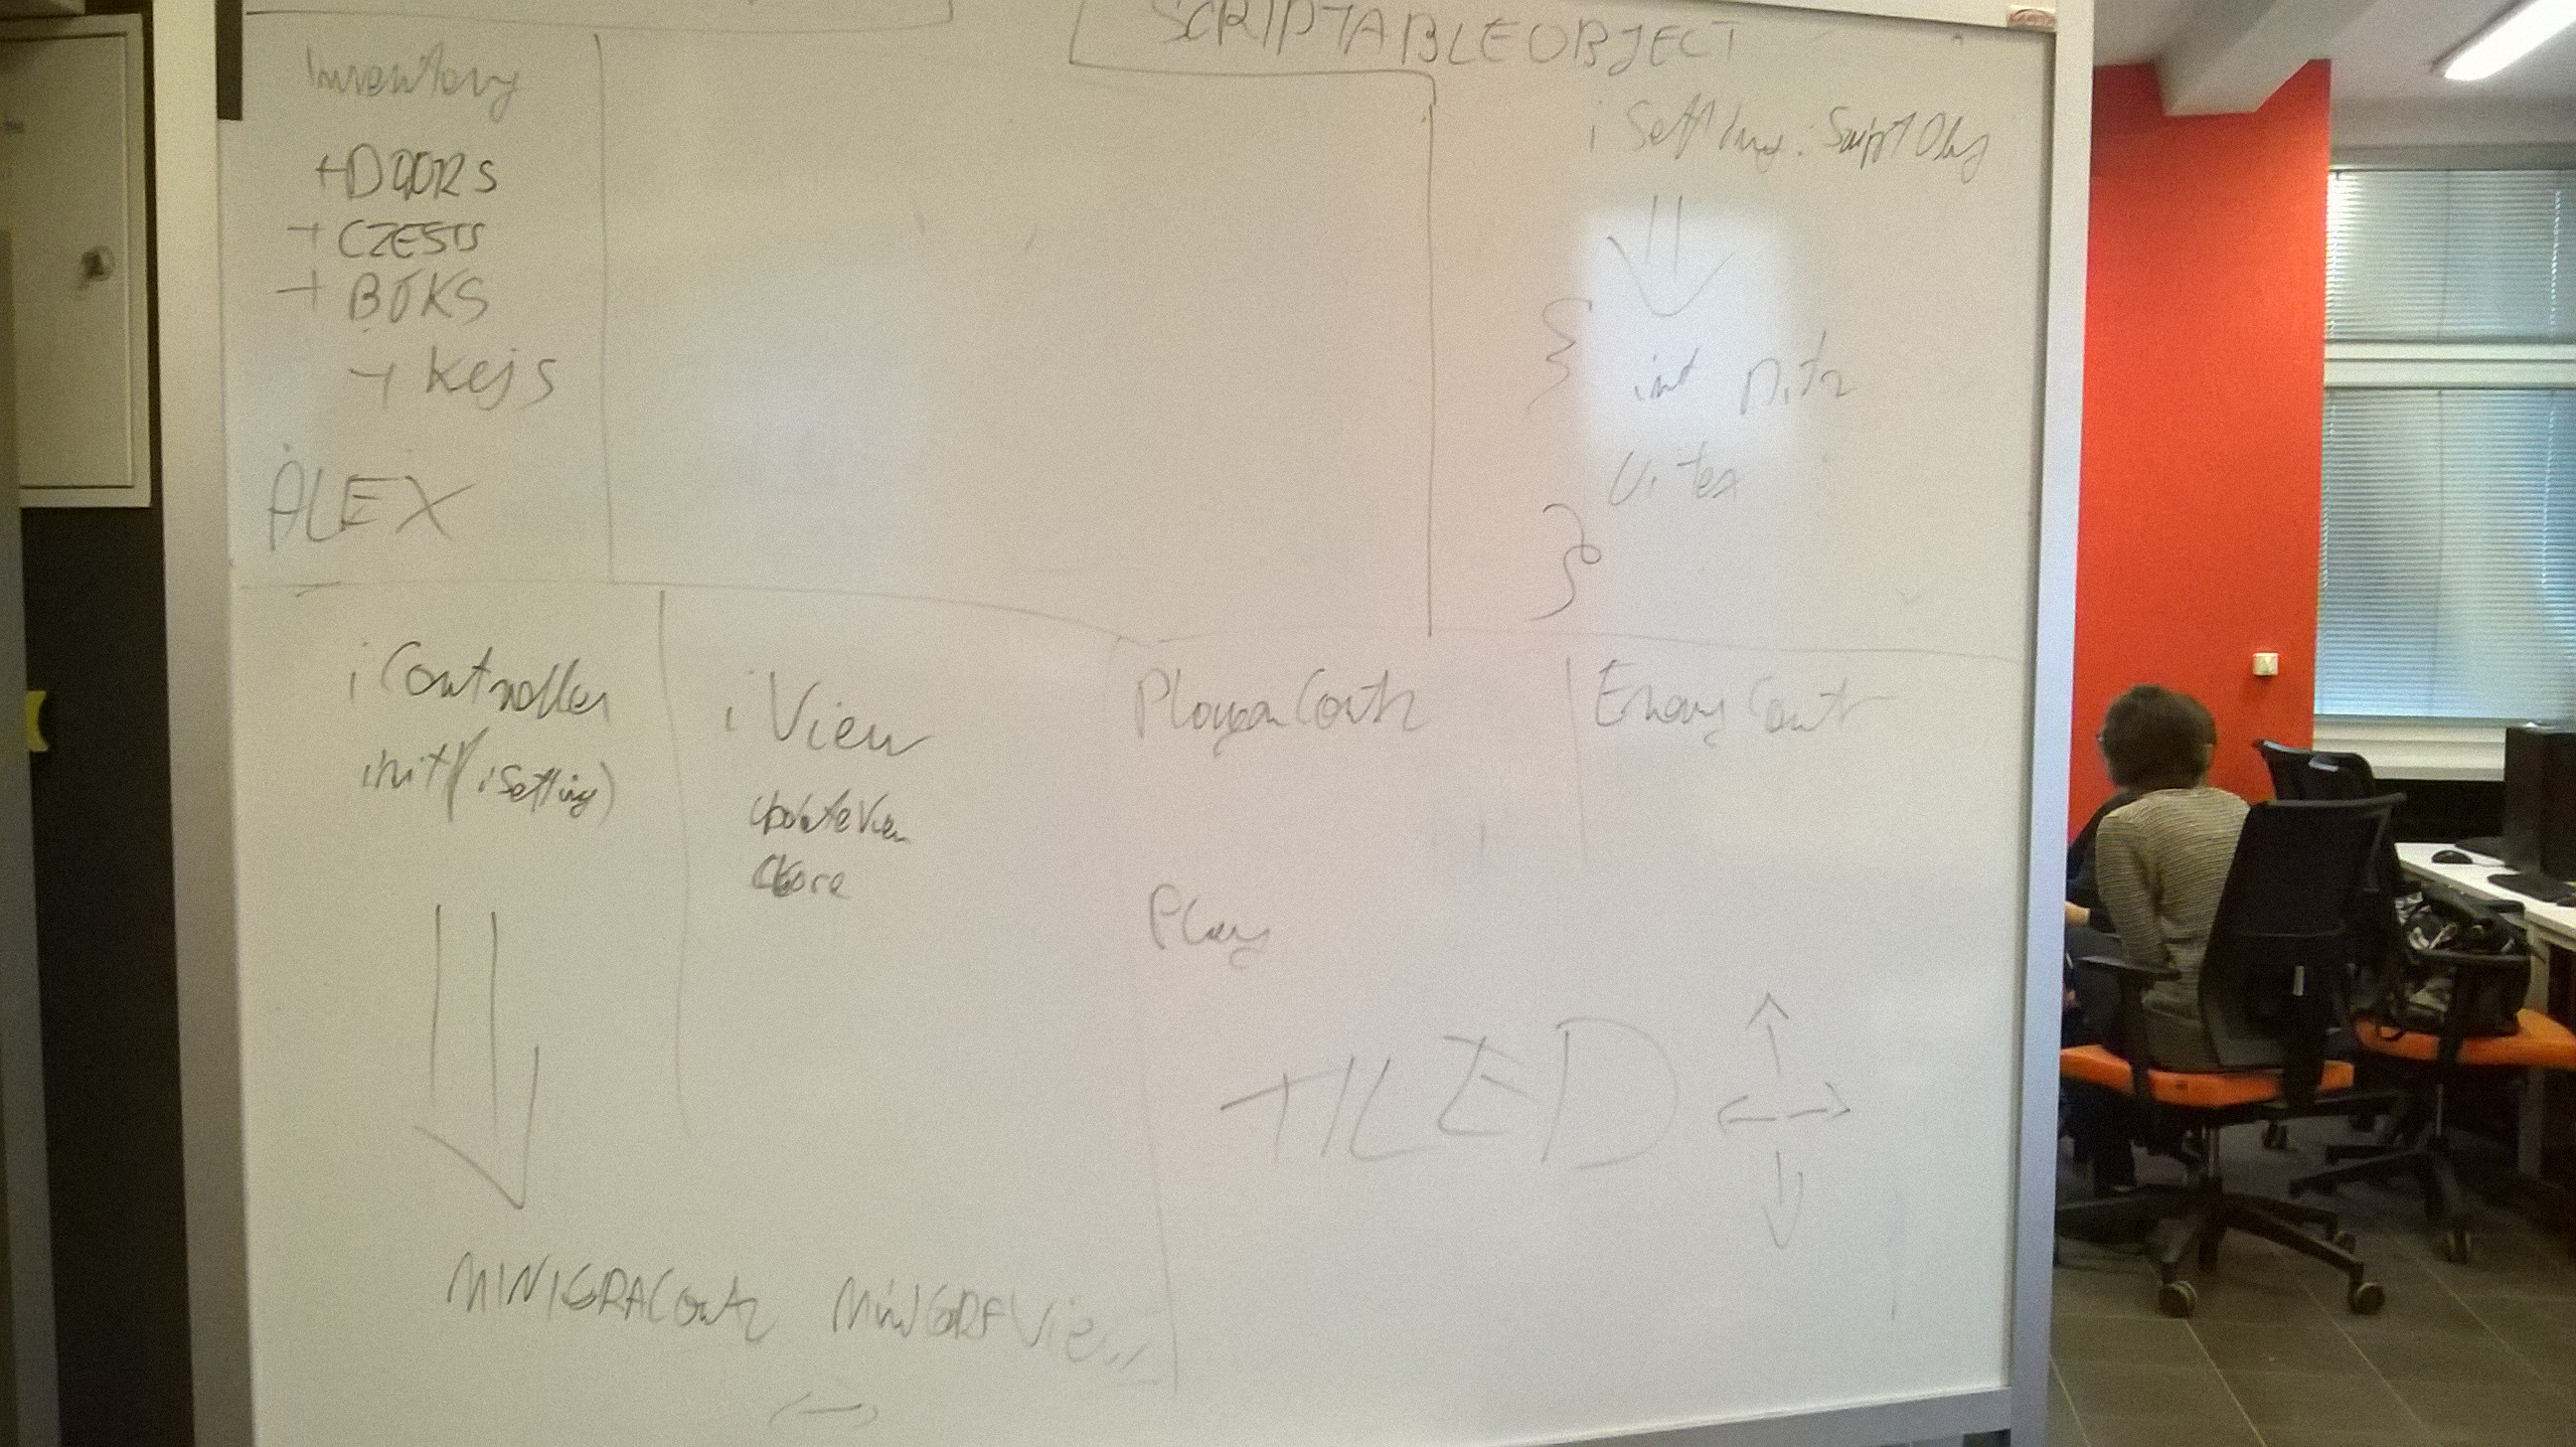 SCRIPTABLEOBJECT
Inventory
+DOORS
+ CZESTS
+ BOKS
+ Kejs
ALEX
iSetting: ScriptObj
int
iController
init(iSetting)
iView
UpdateView
PlayerContr
EnemyContr
Play
TILED
MINIGRAContr MINIGRAView